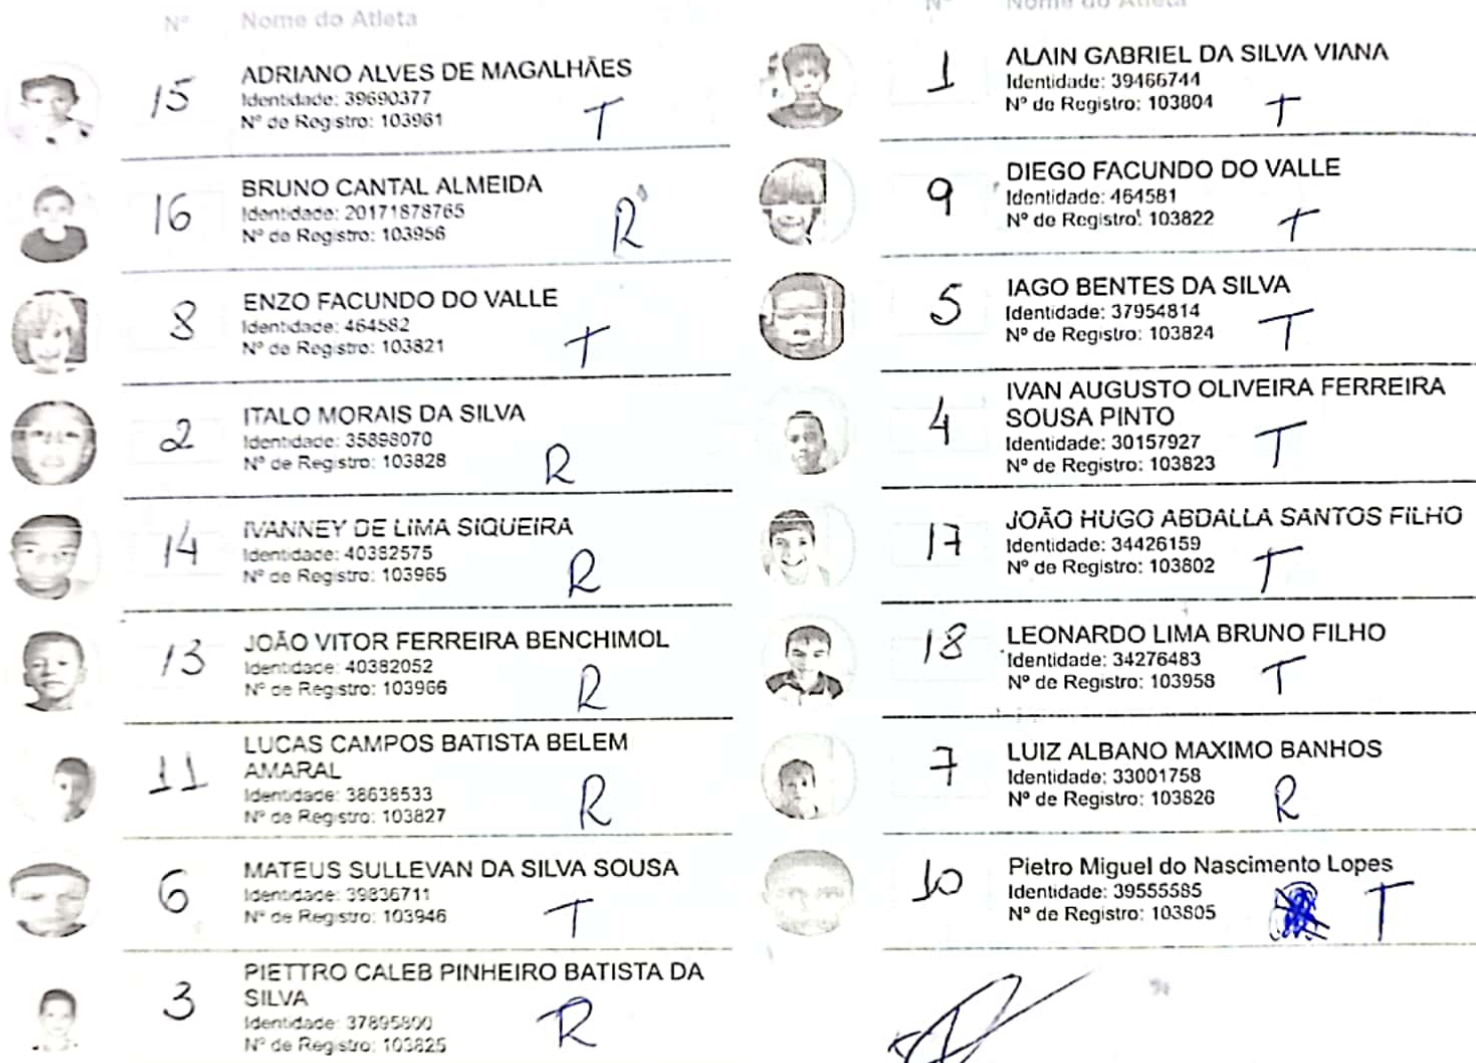 Nº Nome do Atleta
15 ADRIANO ALVES DE MAGALHÃES
Identidade: 39690377
Nº de Registro: 103961 T
16 BRUNO CANTAL ALMEIDA
Identidade: 20171878765
Nº de Registro: 103956 R
8 ENZO FACUNDO DO VALLE
Identidade: 464582
Nº de Registro: 103821 T
2 ITALO MORAIS DA SILVA
Identidade: 35898070
Nº de Registro: 103828 R
14 IVANNEY DE LIMA SIQUEIRA
Identidade: 40382575
Nº de Registro: 103965 R
13 JOÃO VITOR FERREIRA BENCHIMOL
Identidade: 40382052
Nº de Registro: 103966 R
11 LUCAS CAMPOS BATISTA BELEM
AMARAL
Identidade: 38638533
Nº de Registro: 103827 R
6 MATEUS SULLEVAN DA SILVA SOUSA
Identidade: 39836711
Nº de Registro: 103946 T
3 PIETTRO CALEB PINHEIRO BATISTA DA
SILVA
Identidade: 37895800
Nº de Registro: 103825 R
Nº Nome do Atleta
1 ALAIN GABRIEL DA SILVA VIANA
Identidade: 39466744
Nº de Registro: 103804 T
9 DIEGO FACUNDO DO VALLE
Identidade: 464581
Nº de Registro: 103822 T
5 IAGO BENTES DA SILVA
Identidade: 37954814
Nº de Registro: 103824 T
4 IVAN AUGUSTO OLIVEIRA FERREIRA
SOUSA PINTO
Identidade: 30157927
Nº de Registro: 103823 T
17 JOÃO HUGO ABDALLA SANTOS FILHO
Identidade: 34426159
Nº de Registro: 103802 T
18 LEONARDO LIMA BRUNO FILHO
Identidade: 34276483
Nº de Registro: 103958 T
7 LUIZ ALBANO MAXIMO BANHOS
Identidade: 33001758
Nº de Registro: 103826 R
10 Pietro Miguel do Nascimento Lopes
Identidade: 39555585
Nº de Registro: 103805 T